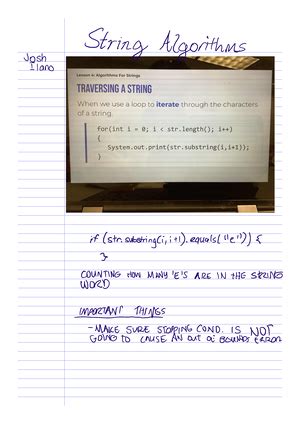 String Algorithms
Josh
Ilano
Lesson 4: Algorithms For Strings
TRAVERSING A STRING
When we use a loop to iterate through the characters
of a string.
for(int i = 0; i < str.length(); i++)
{
System.out.print(str.substring(i,i+1));
}
if (str.substring(i, i+1).equals("e")) {
}
COUNTING HOW MANY 'E'S ARE IN THE STRING
WORD
IMPORTANT THINGS
- MAKE SURE STOPPING COND. IS NOT
GOING TO CAUSE AN OUT OF BOUNDS ERROR